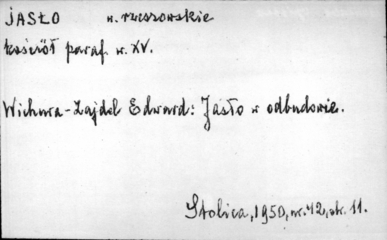 JASŁO w. rzeszowskie
kościół paraf. w. XV.
Wichura-Zajdel Edward: Jasło w odbudowie.
Stolica, 1950, nr. 42, str. 11.